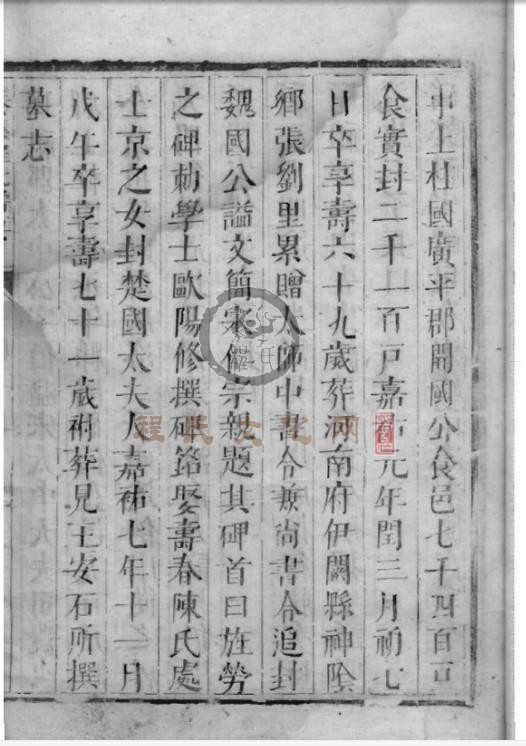 中上柱國廣平郡開國公食邑七千四百戶
食實封二千一百戶嘉祐元年閏三月初七
日卒享壽六十九歲葬河南府伊闕縣神陰
鄉張劉里累贈太師中書令兼尚書令追封
魏國公謚文簡宋仁宗親題其碑首曰旌勞
之碑勅學士歐陽修撰碑銘娶壽春陳氏處
士京之女封楚國太夫人嘉祐七年十一月
戊午卒享壽七十一歲祔葬見王安石所撰
墓志
程氏文化网